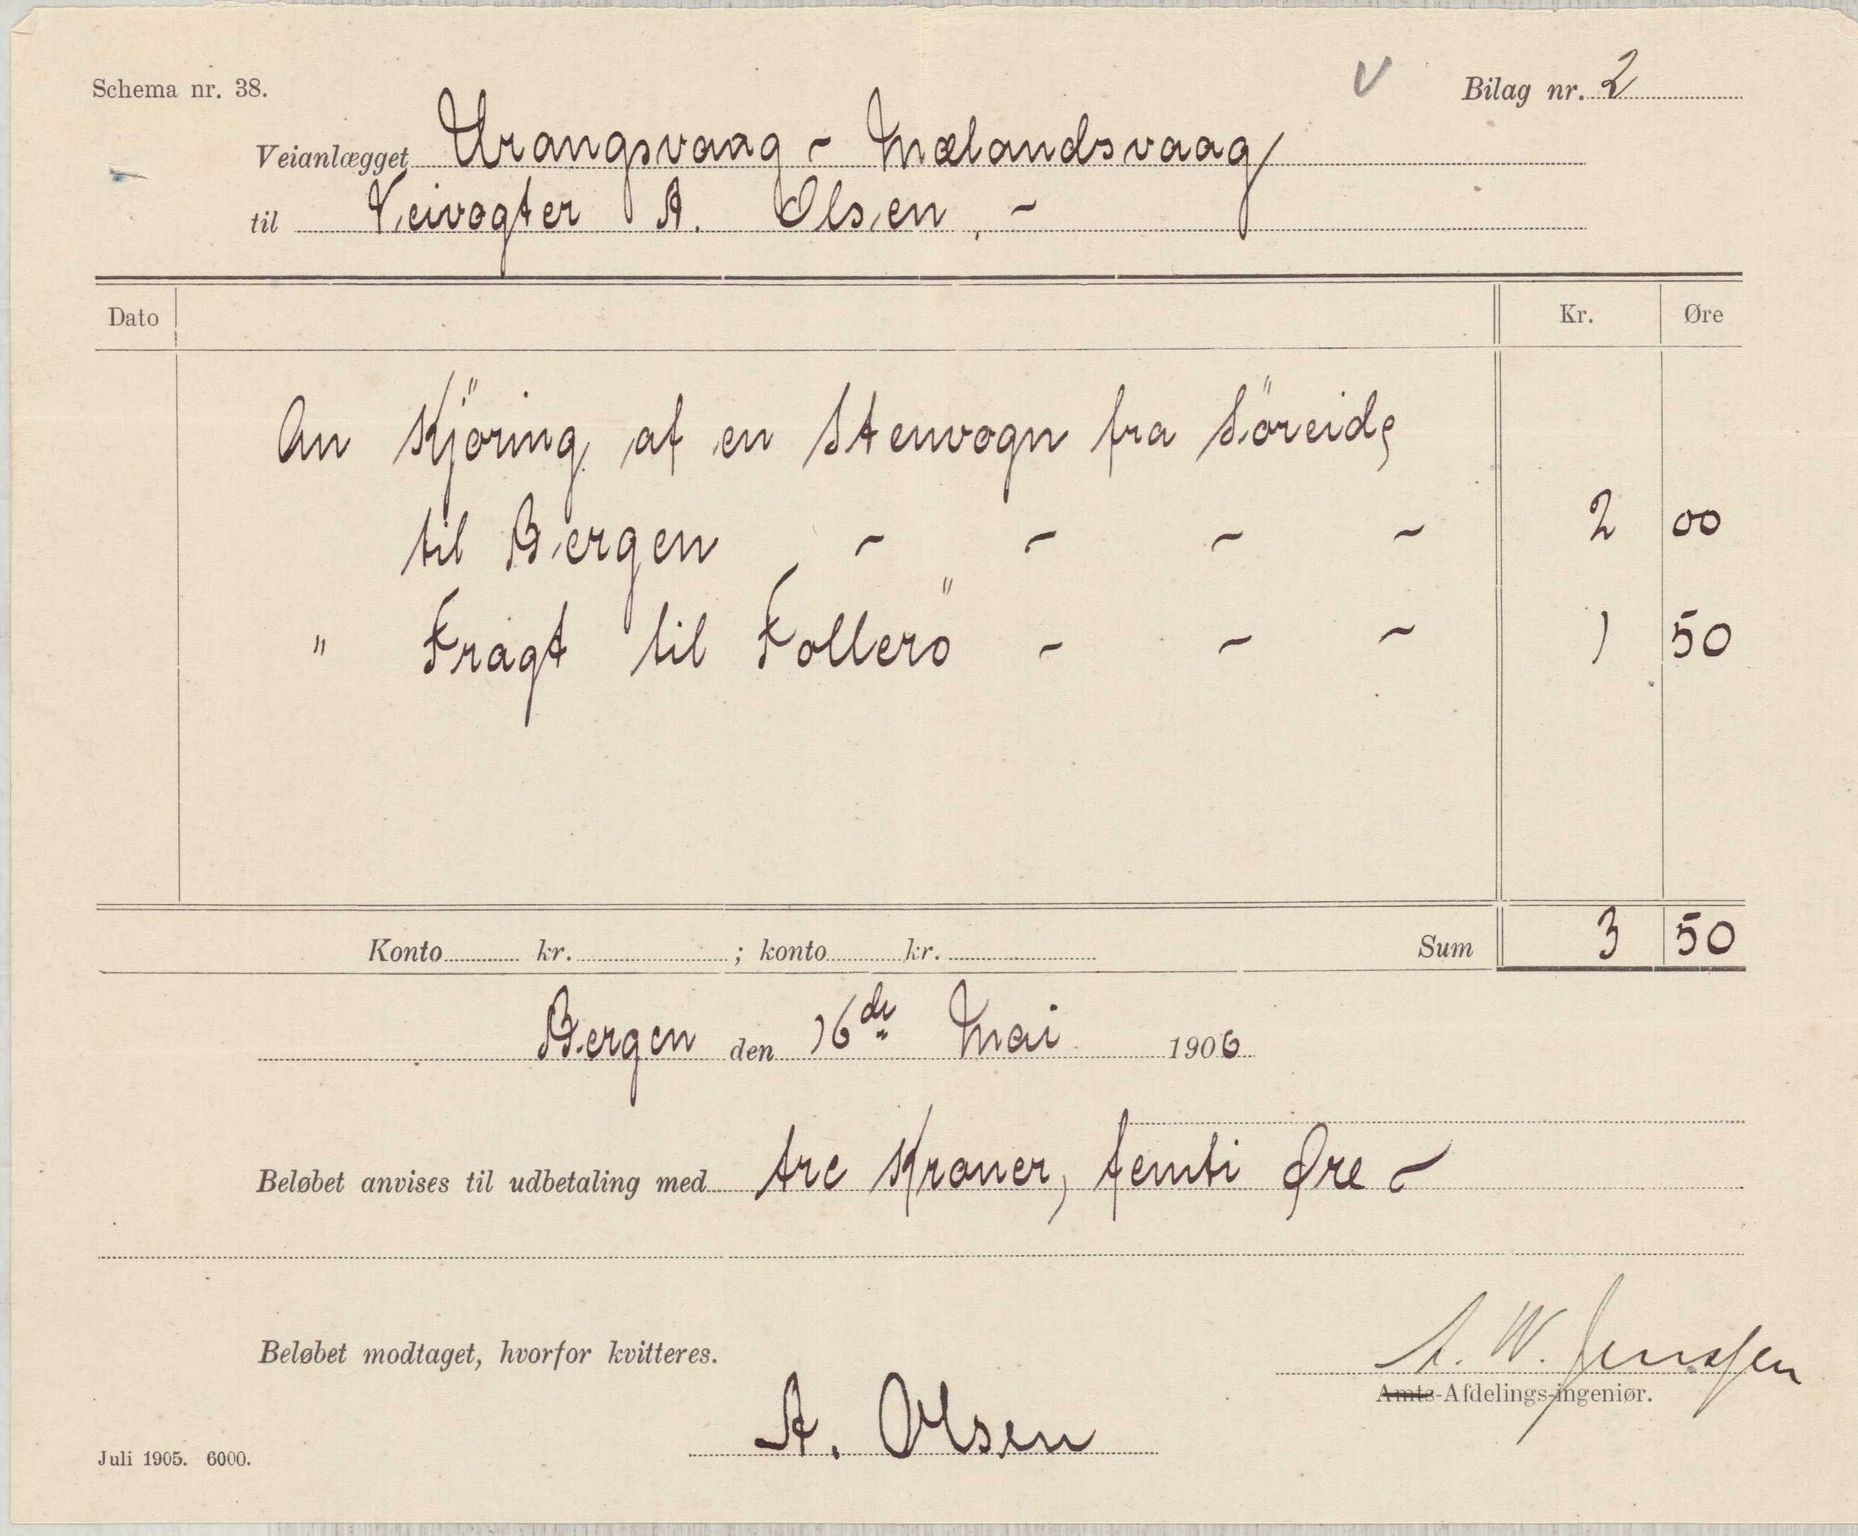 Schema nr. 38.
V
Bilag nr. 2
Veianlægget Urangsvaag - Mælandsvaag
til Veivogter A. Olsen. -
Dato Kr. Øre
An Kjöring af en Stenvogn fra Söreide
til Bergen - - - - 2 00
" Fragt til Follerö - - - 1 50
Konto kr. ; konto kr. Sum 3 50
Bergen den 16de Mai 1906
Beløbet anvises til udbetaling med tre Kroner, femti Øre -
Beløbet modtaget, hvorfor kvitteres.
A. W. Jenssen
Amts-Afdelings-ingeniør.
A. Olsen
Juli 1905. 6000.